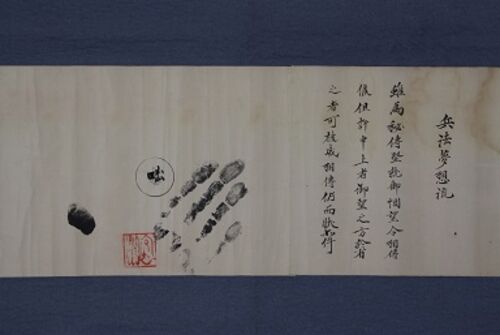 兵法夢想流
雖為秘傳堅御悃望令相傳
候但許申上者御望之方於有
之者可被成相傳仍而狀如件